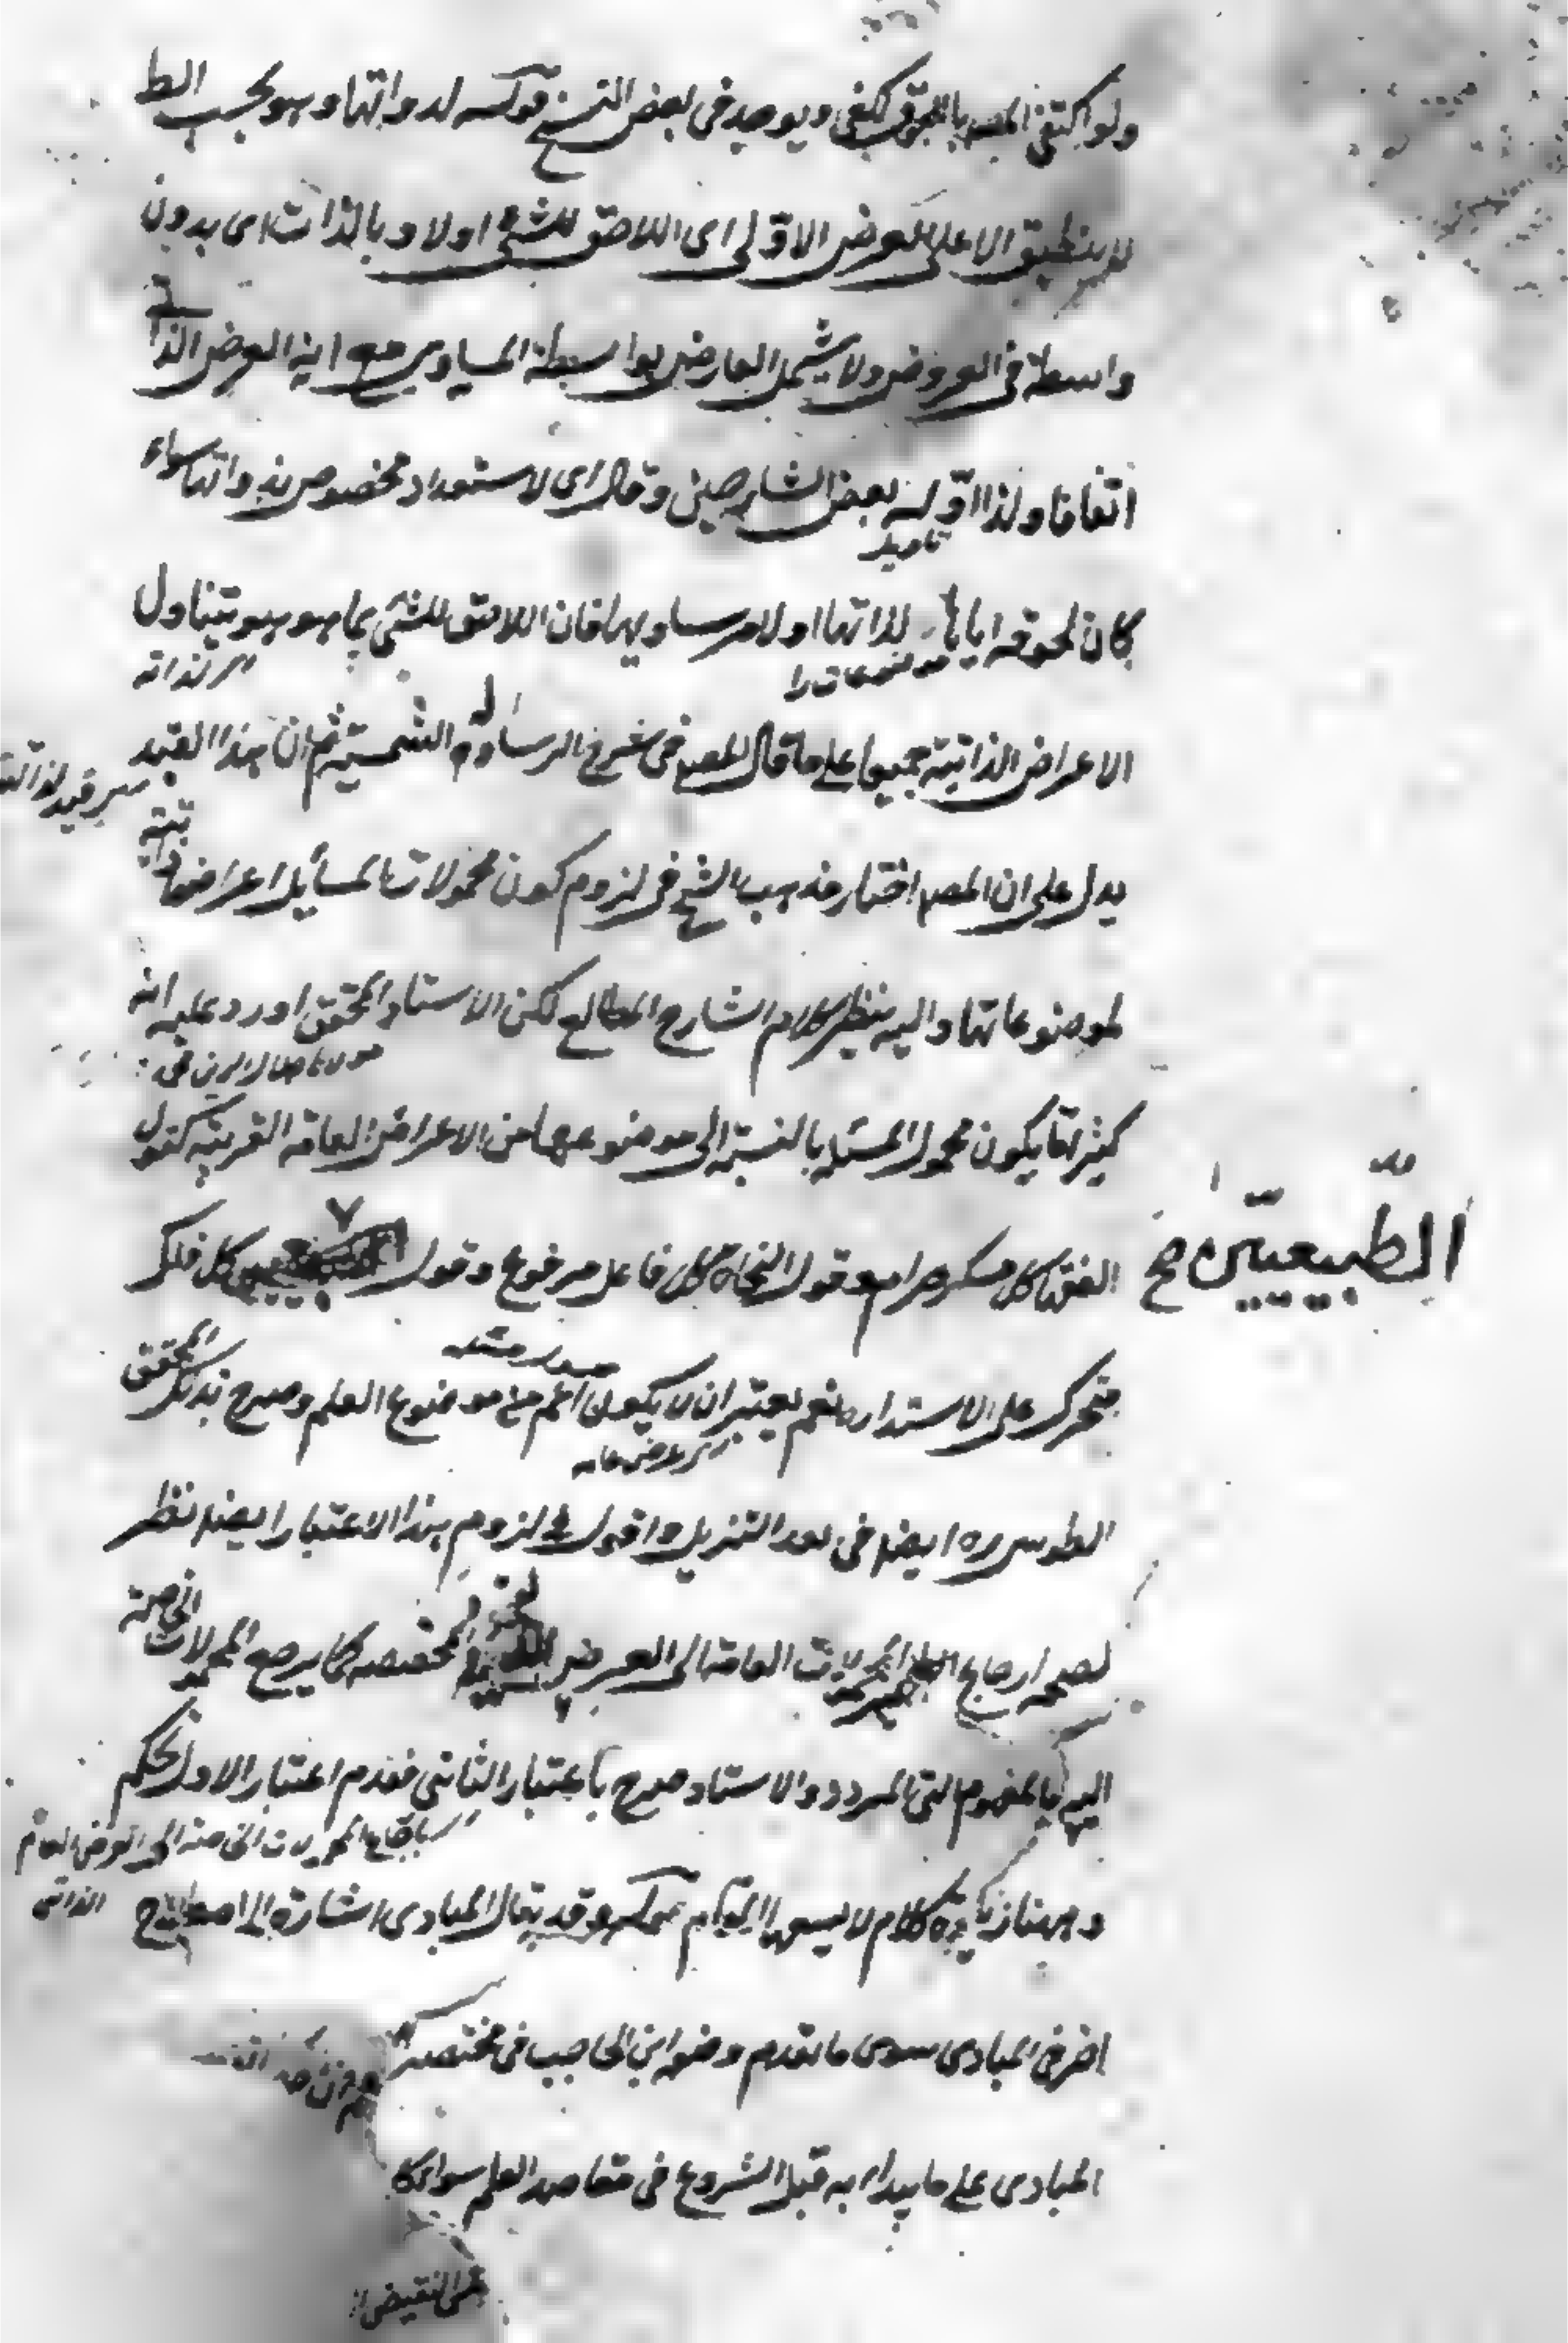 ولو اكتفى المصـ بالمجموع لكفى ويوجد في بعض النسخ قوله لذواتها وهو بحسب الظ
لا ينطبق الا على العرض الاوّلى اى اللاحق للشئ اولا وبالذات اى بدون
واسطة في العروض ولا يشمل العارض بواسطة المساوى مع انه العرض الذاتى
اتفاقا ولذا اوّله بعض الشارحين وقال اى لاستعداد مخصوص بذواتها سواء
تاويل
كان لحوقه اياها لذاتها او لامر يساويها فان اللاحق للشئ بما هو هو يتناول
موضوعات را
اى لذاته
الاعراض الذاتية جميعا على ما قال المصـ في شرح الرسالة الشمسية ثم ان هذا القيد
يدل على ان المصـ اختار مذهب الشيخ في لزوم كون محمولات المسائل اعراضا ذاتية
لموضوعاتها واليه ينظر كلام الشارح المطالع لكن الاستاد المحقق اورد عليه انه
مولانا جلال الدين
كثيرا ما يكون محمول المسئلة بالنسبة الى موضوعها من الاعراض العامة الغريبة كقول
الفقهاء كل مسكر حرام وقول النحاة كل فاعل مرفوع وقول كل فلك
الطّبيعيّين صح
متحرك على الاستدارة نعم يعتبر ان لا يكون اعم من موضوع العلم وصرح بذلك المحقق
الطوسى ره ايضا في نقد التنزيل واقول في لزوم هذا الاعتبار ايضا نظر
لصحة ارجاع المحمولات العامة الى العرض المختصة كما يرجع المحمولات الخاصة
اليه بالمفهوم المردد والاستاد صرح باعتبار الثانى فعدم اعتبار الاول تحكم
بارجاع المحمولات الخاصة الى العرض العام
الذاتى
وههنا زيادة كلام لا يسعها المقام قوله وقد يقال المبادى اشارة الى اصطلاح
اخر في المبادى سوى ما تقدم وضعه ابن الحاجب في مختصر
المبادى على ما يبدأ به قبل الشروع في مقاصد العلم سواء كا